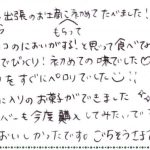 出張のお土産 初めてたべました!
もらって
コのにおいがする!と思って食べて
びっくり!初めての味でした
をすぐにペロリでした
に入りのお菓子ができました
バーも今度購入してみたいで
おいしかったです。ごちそうさま